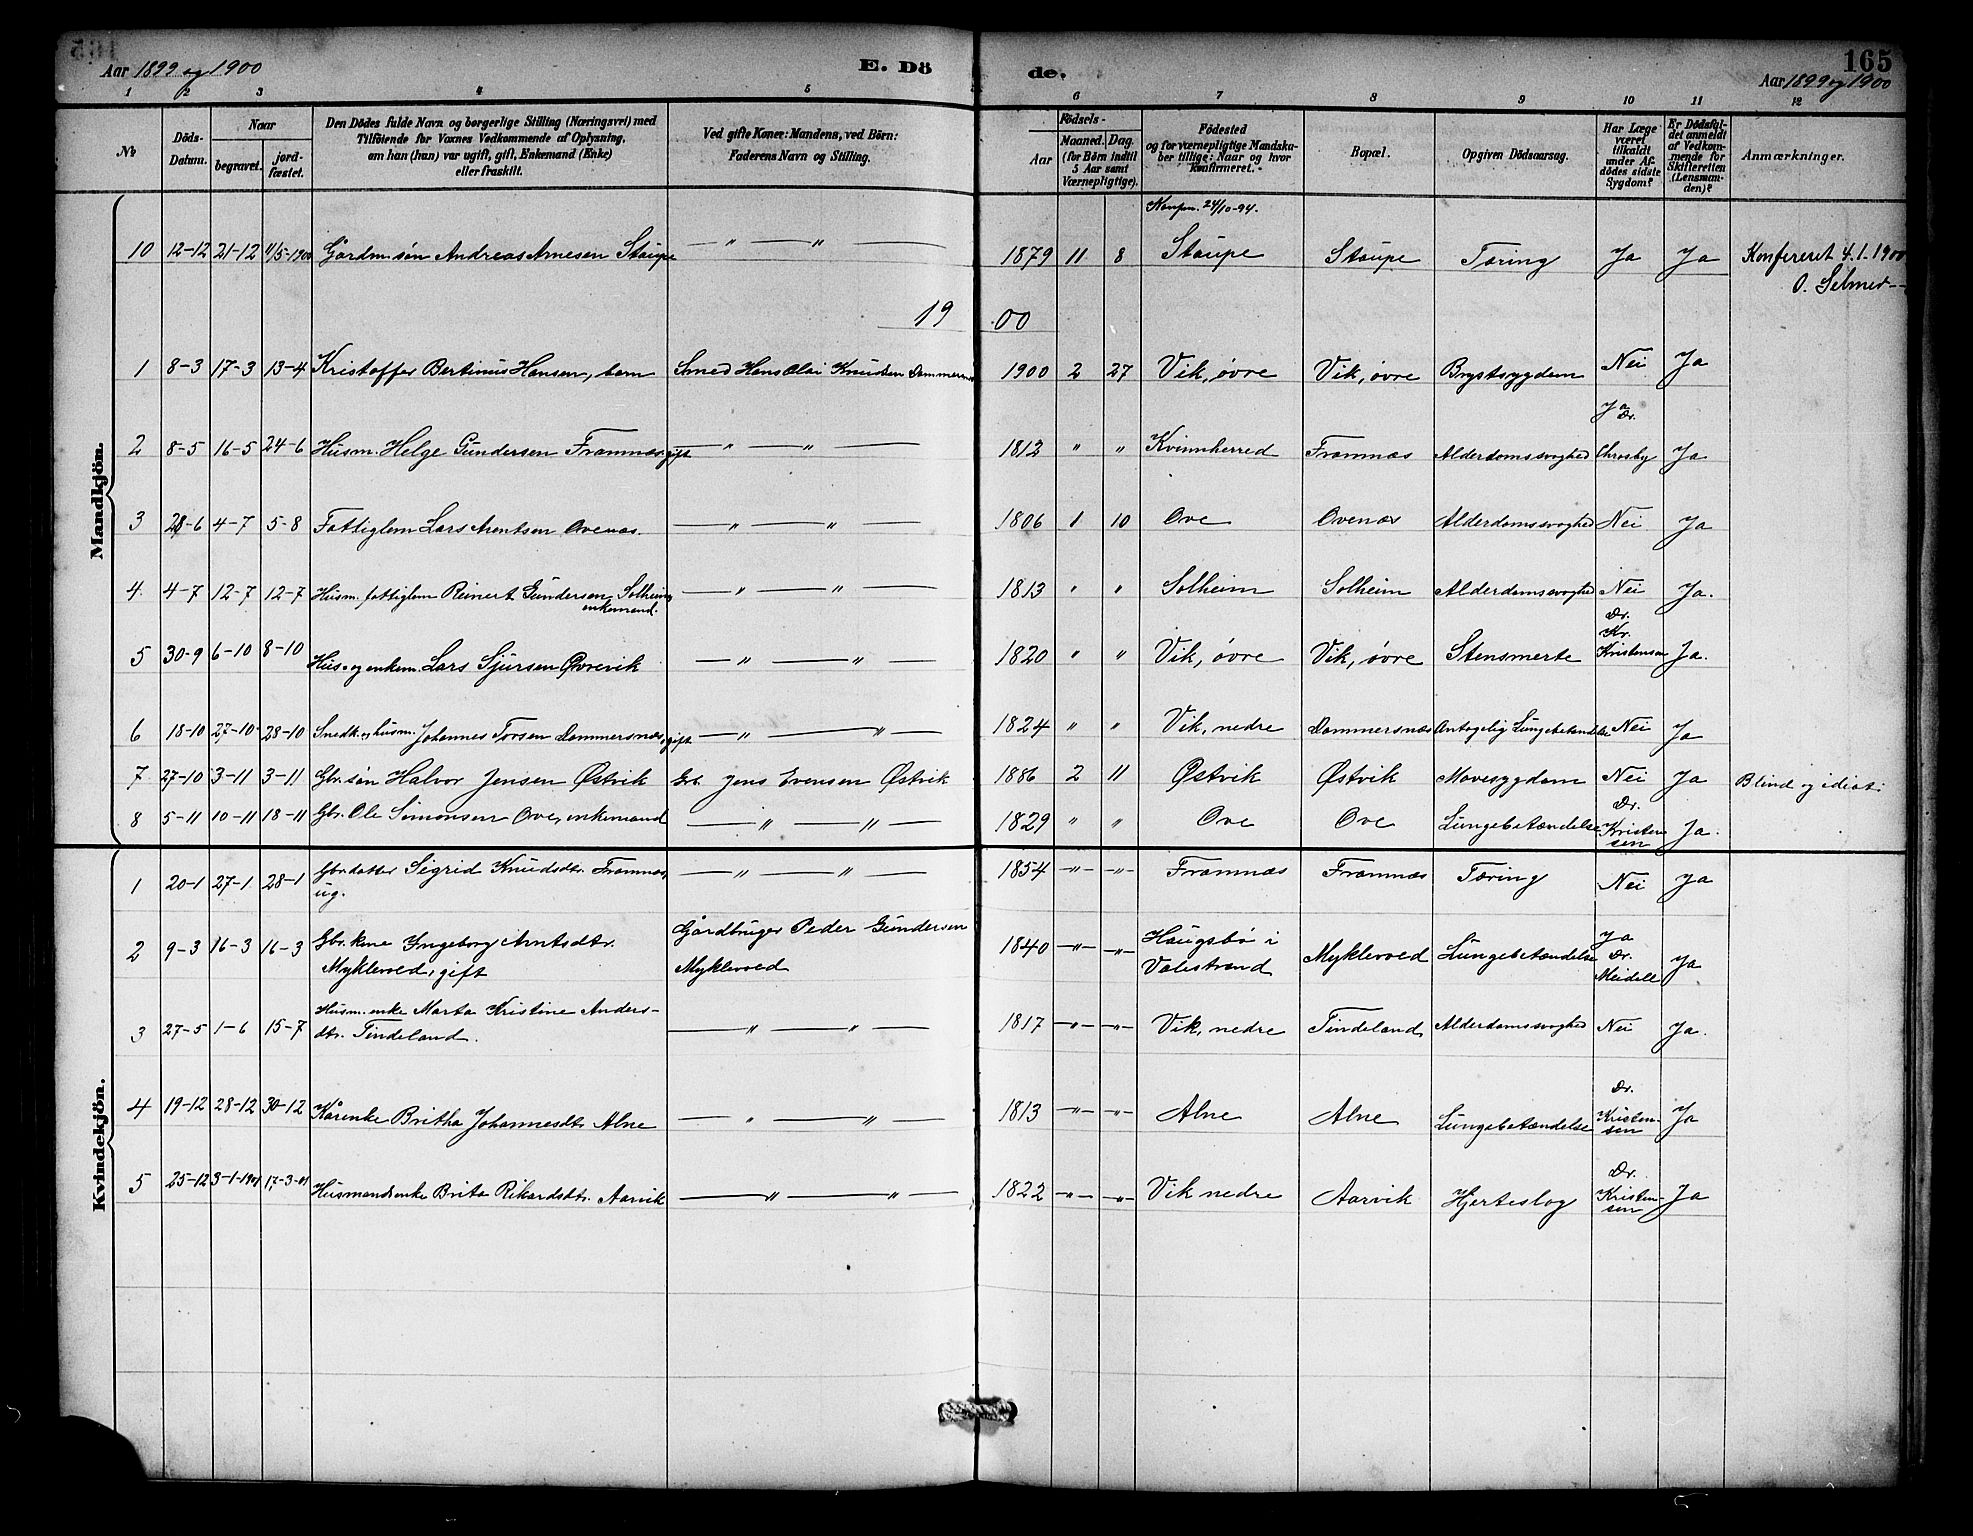 Aar 1899 og 1900 E. Dö de. 165
Aar 1899 og 1900
1 2 3 4 5 6 7 8 9 10 11 12
No. Döds-Datum. Naar begravet. jord-fæstet. Den Dödes fulde Navn og borgerlige Stilling (Næringsvei) med Tilföiende for Voxnes Vedkommende af Oplysning, om han (hun) var ugift, gift, Enkemand (Enke) eller fraskilt. Ved gifte Koner: Mandens, ved Börn: Faderens Navn og Stilling. Födsels- Aar Maaned. Dag. (for Börn indtil 5 Aar samt Værnepligtige). Födested og for værnepligtige Mandskaber tillige: Naar og hvor konfirmeret. Bopæl. Opgiven Dödsaarsag. Har Læge været tilkaldt under Afdödes sidste Sygdom? Er Dödsfaldet anmeldt af Vedkommende for Skifteretten (Lensmanden)? Anmærkninger.
Mandkjön.
Konfirm. 24/10-94.
10 12-12 21-12 11/5-1900 Gårdm. søn Andreas Arnesen Staupe — " — " — 1879 11 8 Staupe Staupe Tæring Ja Ja Konfereret 4.1-1900
O. Selmer
19 00
1 8-3 17-3 13-4 Kristoffer Bertinus Hansen, barn Smed Hans Olai Knudsen Dommersnæs 1900 2 27 Vik, øvre Vik, øvre Brystsygdom Nei Ja
2 8-5 16-5 24-6 Husm. Helge Gundersen Framnæs, gift — " — " — 1812 " " Kvinnherred Framnæs Alderdomssvaghed Ja Dr. Chrosby Ja
3 28-6 4-7 5-8 Fattiglem Lars Arentsen Ovenæs. — " — " — 1806 1 10 Ove Ovenæs Alderdomssvaghed Nei Ja
4. 4-7 12-7 12-7 Husm. fattiglem Reinert Gundersen Solheim,
enkemand. — " — " — 1813 " " Solheim Solheim Alderdomssvaghed Nei Ja.
5 30-9 6-10 8-10 Hus- og enkem. Lars Sjursen Øvrevik — " — " — 1820 " " Vik, øvre Vik, øvre Stensmerte Dr. Kr. Kristensen Ja.
6 18-10 27-10 28-10 Snedk. og husm. Johannes Torsen Dommersnæs, gift — " — " — 1824 " " Vik, nedre Dommersnæs Antagelig Lungebetændelse Nei Ja
7 27-10 3-11 3-11 Gbr. søn Halvor Jensen Østvik Gb. Jens Evensen Østvik 1886 2 11 Østvik Østvik Mavesygdom Nei Ja Blind og idiot.
8 5-11 10-11 18-11 Gbr. Ole Simonsen Ove, enkemand — " — " — 1829 " " Ove Ove Lungebetændelse Dr. Kristensen Ja.
Kvindekjön.
1 20-1 27-1 28-1 Gbr. datter Sigrid Knudsdtr. Framnæs,
ug. — " — " — 1854 -"- -"- Framnæs Framnæs Tæring Nei Ja
2 9-3 16-3 16-3 Gbr. kone Ingeborg Arntsdtr.
Myklevold, gift Gårdbruger Peder Gundersen
Myklevold 1840 -"- -"- Haugsbø i
Valestrand Myklevold Lungebetændelse Ja Dr. Meidell Ja
3 27-5 1-6 15-7 Husm. enke Marta Kristine Anders-
dtr. Tindeland. — " — " — 1817 -"- -"- Vik, nedre Tindeland Alderdomssvaghed Nei Ja.
4 19-12 28-12 30-12 Kårenke Britha Johannesdtr. Alne — " — " — 1813 -"- -"- Alne Alne Lungebetændelse Dr. Kristensen Ja
5 25-12 3-1-1901 17-3-01 Husmandsenke Brita Rikardsdtr. Aarvik — " — " — 1822 -"- -"- Vik nedre Aarvik Hjerteslag Dr. Kristensen Ja